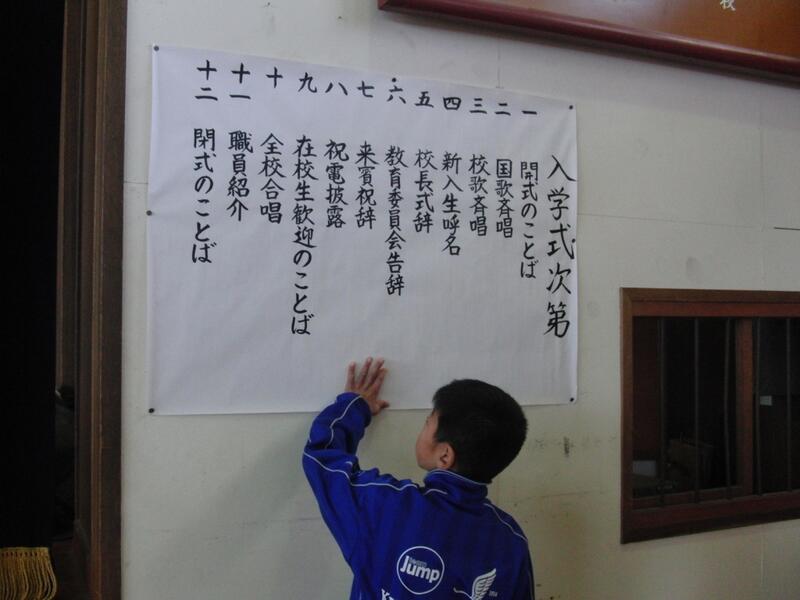 入学式次第
一 開式のことば
二 国歌斉唱
三 校歌斉唱
四 新入生呼名
五 校長式辞
六 教育委員会告辞
七 来賓祝辞
八 祝電披露
九 在校生歓迎のことば
十 全校合唱
十一 職員紹介
十二 閉式のことば
Jump